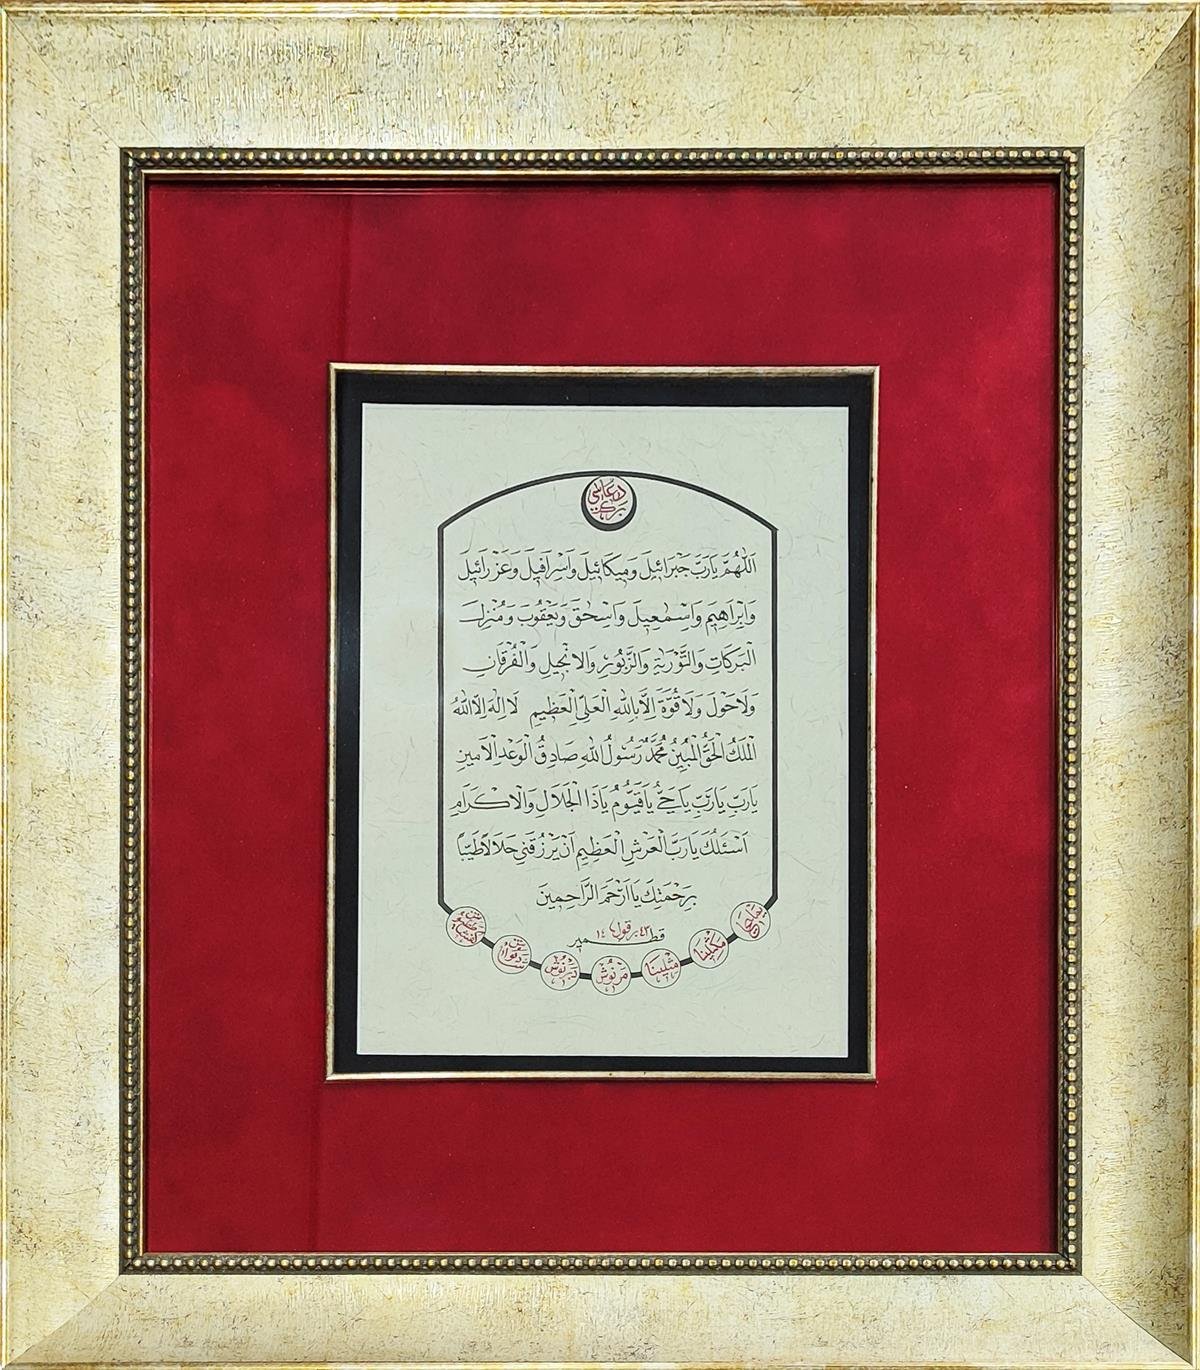 دعاسى
بركت
اَللّٰهُمَّ يَارَبَّ جَبْرَائِيلَ وَمِيكَائِيلَ وَاِسْرَافِيلَ وَعَزْرَائِيلَ
وَاِبْرَاهِيمَ وَاِسْمٰعِيلَ وَاِسْحٰقَ وَيَعْقُوبَ وَمُنْزِلَ
الْبَرَكَاتِ وَالتَّوْرٰيةِ وَالزَّبُورِ وَالْاِنْجِيلِ وَالْفُرْقَانِ
وَلَاحَوْلَ وَلَاقُوَّةَ اِلَّا بِاللّٰهِ الْعَلِىِّ الْعَظِيمِ لَا اِلٰهَ اِلَّا اللّٰهُ
الْمَلِكُ الْحَقُّ الْمُبِينُ مُحَمَّدٌ رَسُولُ اللّٰهِ صَادِقُ الْوَعْدِ الْاَمِينِ
يَارَبِّ يَارَبِّ يَاحَىُّ يَاقَيُّومُ يَاذَا الْجَلَالِ وَالْاِكْرَامِ
اَسْئَلُكَ يَارَبَّ الْعَرْشِ الْعَظِيمِ اَنْ يَرْزُقَنِى حَلَالًا طَيِّبًا
بِرَحْمَتِكَ يَا اَرْحَمَ الرَّاحِمِينَ
يمليخا
مكثلينا
مثلينا
مرنوش
دبرنوش
شاذنوش
كفشططيوش
قطمير